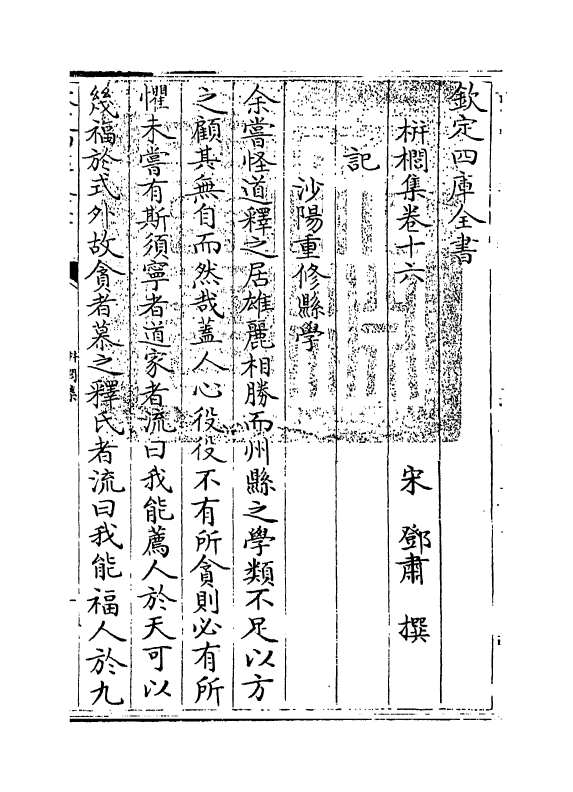 欽定四庫全書
栟櫚集卷十六
宋 鄧肅 撰
記
沙陽重修縣學
余嘗怪道釋之居雄麗相勝而州縣之學類不足以方
之顧其無自而然哉蓋人心役役不有所貪則必有所
懼未嘗有斯須寧者道家者流曰我能薦人於天可以
幾福於式外故貪者慕之釋氏者流曰我能福人於九